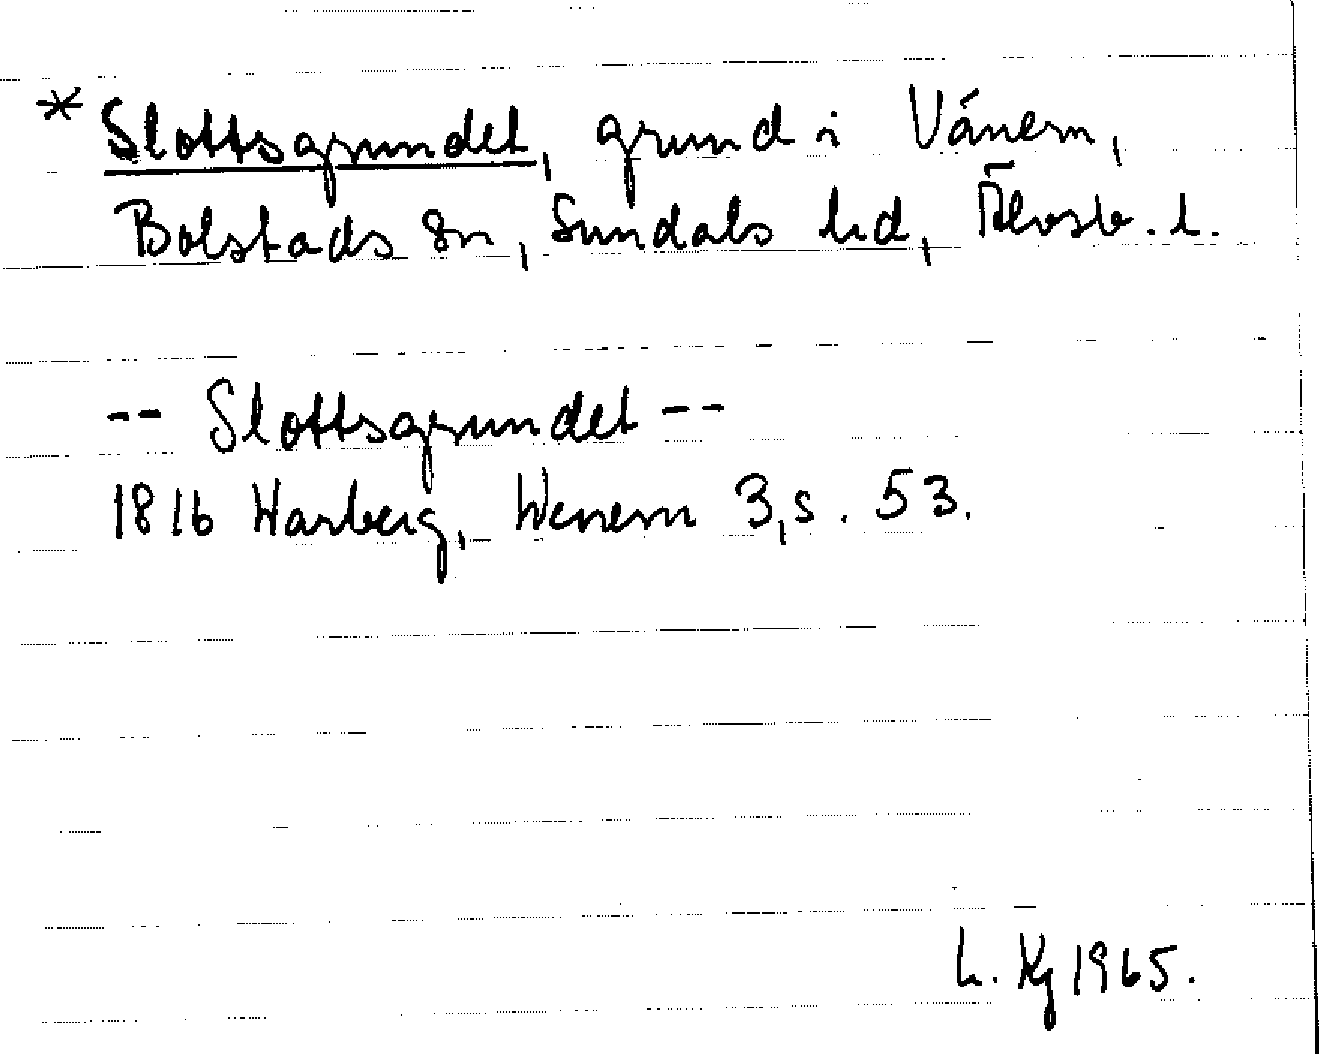 * Slottsgrundet, grund i Vänern,
Bolstads sn, Sundals hd, Älvsb. l.
-- Slottsgrundet --
1816 Warberg, Wenern 3, s. 53.
L. Kg 1965.